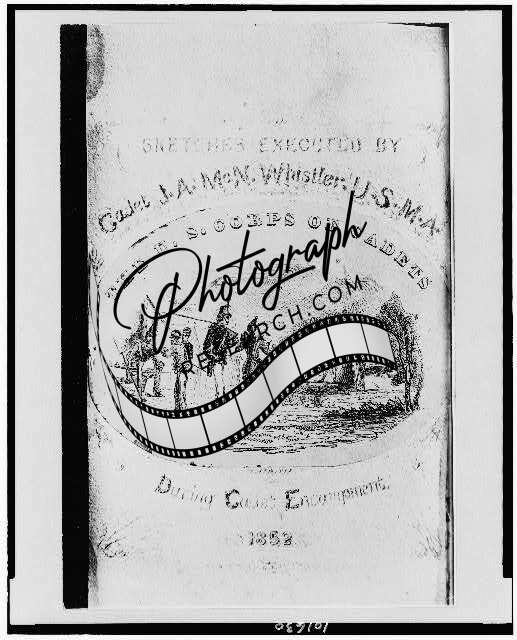 SKETCHES EXECUTED BY
Cadet J. A. McN. Whistler. U.S.M.A.
U. S. CORPS OF CADETS
Photograph
RESEARCH.COM
During Cadet Encampment.
1852